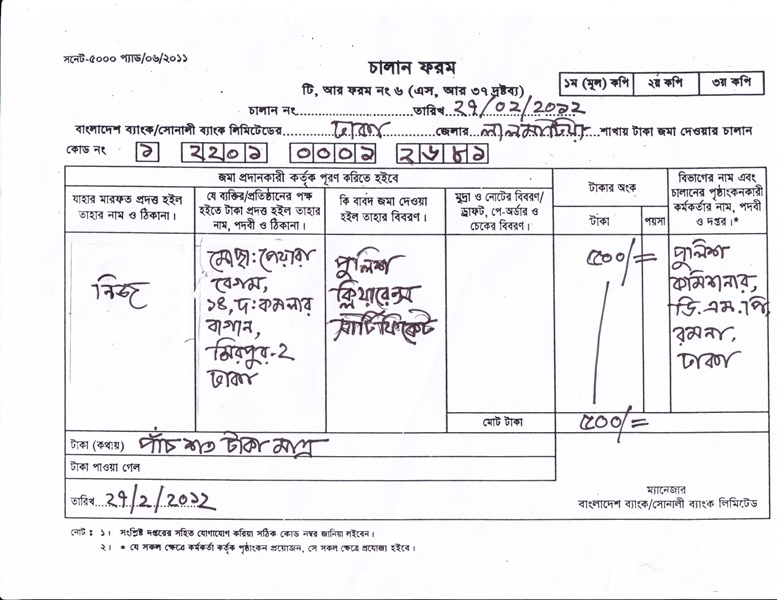 সনেট-৫০০০ প্যাড/০৬/২০১১
চালান ফরম
টি, আর ফরম নং ৬ (এস, আর ৩৭ দ্রষ্টব্য)
১ম (মূল) কপি ২য় কপি ৩য় কপি
চালান নং.................................তারিখ ২৭/০২/২০১২
বাংলাদেশ ব্যাংক/সোনালী ব্যাংক লিমিটেডের.........ঢাকা.........জেলার...লালমাটিয়া...শাখায় টাকা জমা দেওয়ার চালান
কোড নং ১ ২২০১ ০০০১ ২৬৮১
জমা প্রদানকারী কর্তৃক পূরণ করিতে হইবে
যাহার মারফত প্রদত্ত হইল
তাহার নাম ও ঠিকানা।
যে ব্যক্তির/প্রতিষ্ঠানের পক্ষ
হইতে টাকা প্রদত্ত হইল তাহার
নাম, পদবী ও ঠিকানা।
কি বাবদ জমা দেওয়া
হইল তাহার বিবরণ।
মুদ্রা ও নোটের বিবরণ/
ড্রাফট, পে-অর্ডার ও
চেকের বিবরণ।
টাকার অংক
টাকা পয়সা
বিভাগের নাম এবং
চালানের পৃষ্ঠাংকনকারী
কর্মকর্তার নাম, পদবী
ও দপ্তর।*
নিজ
মোছা: পেয়ারা
বেগম,
১৪, দ: কমলার
বাগান,
মিরপুর-২
ঢাকা
পুলিশ
ক্লিয়ারেন্স
সার্টিফিকেট
৫০০/=
পুলিশ
কমিশনার,
ডি.এম.পি,
রমনা,
ঢাকা
মোট টাকা ৫০০/=
টাকা (কথায়) পাঁচ শত টাকা মাত্র
টাকা পাওয়া গেল
তারিখ..২৭/২/২০১২
ম্যানেজার
বাংলাদেশ ব্যাংক/সোনালী ব্যাংক লিমিটেড
নোট : ১। সংশ্লিষ্ট দপ্তরের সহিত যোগাযোগ করিয়া সঠিক কোড নম্বর জানিয়া লইবেন।
২। * যে সকল ক্ষেত্রে কর্মকর্তা কর্তৃক পৃষ্ঠাংকন প্রয়োজন, সে সকল ক্ষেত্রে প্রযোজ্য হইবে।